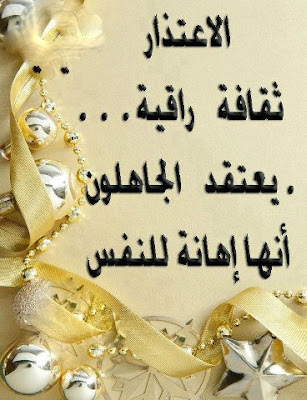 الاعتذار
ثقافة راقية . . .
. يعتقد الجاهلون
أنها إهانة للنفس